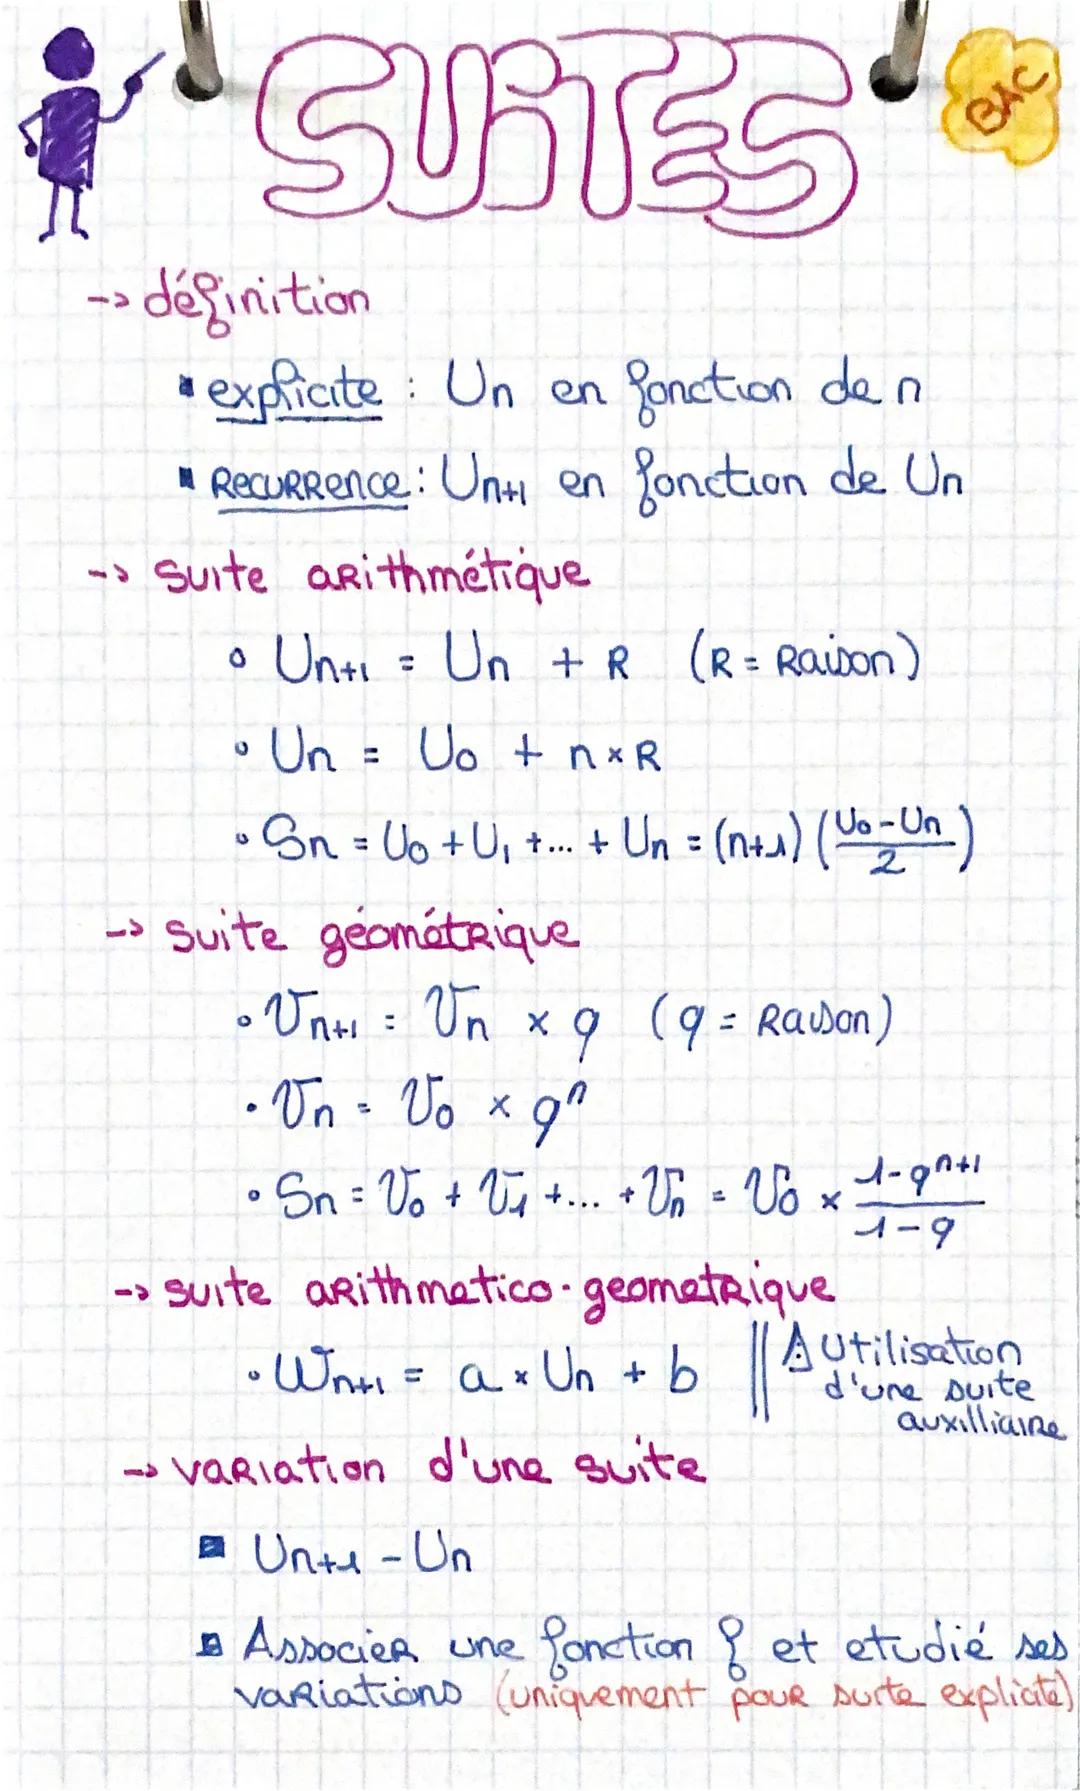 SUiTES
BAC
-> définition
▪ explicite : Un en fonction de n
▪ Recurrence : Un+1 en fonction de Un
-> suite arithmétique
• Un+1 = Un + R (R = Raison)
• Un = U0 + n × R
• Sn = U0 + U1 + ... + Un = (n+1) (U0 - Un / 2)
-> suite géométrique
• Vn+1 = Vn × q (q = Raison)
• Vn = V0 × qⁿ
• Sn = V0 + V1 + ... + Vn = V0 × 1-qⁿ⁺¹ / 1-q
-> suite arithmetico-geometrique
• Wn+1 = a × Un + b || ⚠ Utilisation
d'une suite
auxilliaire
-> variation d'une suite
▪ Un+1 - Un
▪ Associer une fonction f et etudié ses
variations (uniquement pour suite explicite)